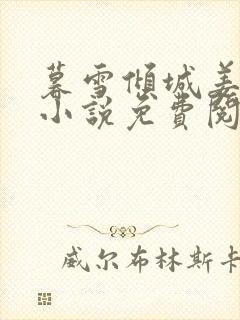 暮雪傾城姜
小說免費閱
威尔布林斯卡